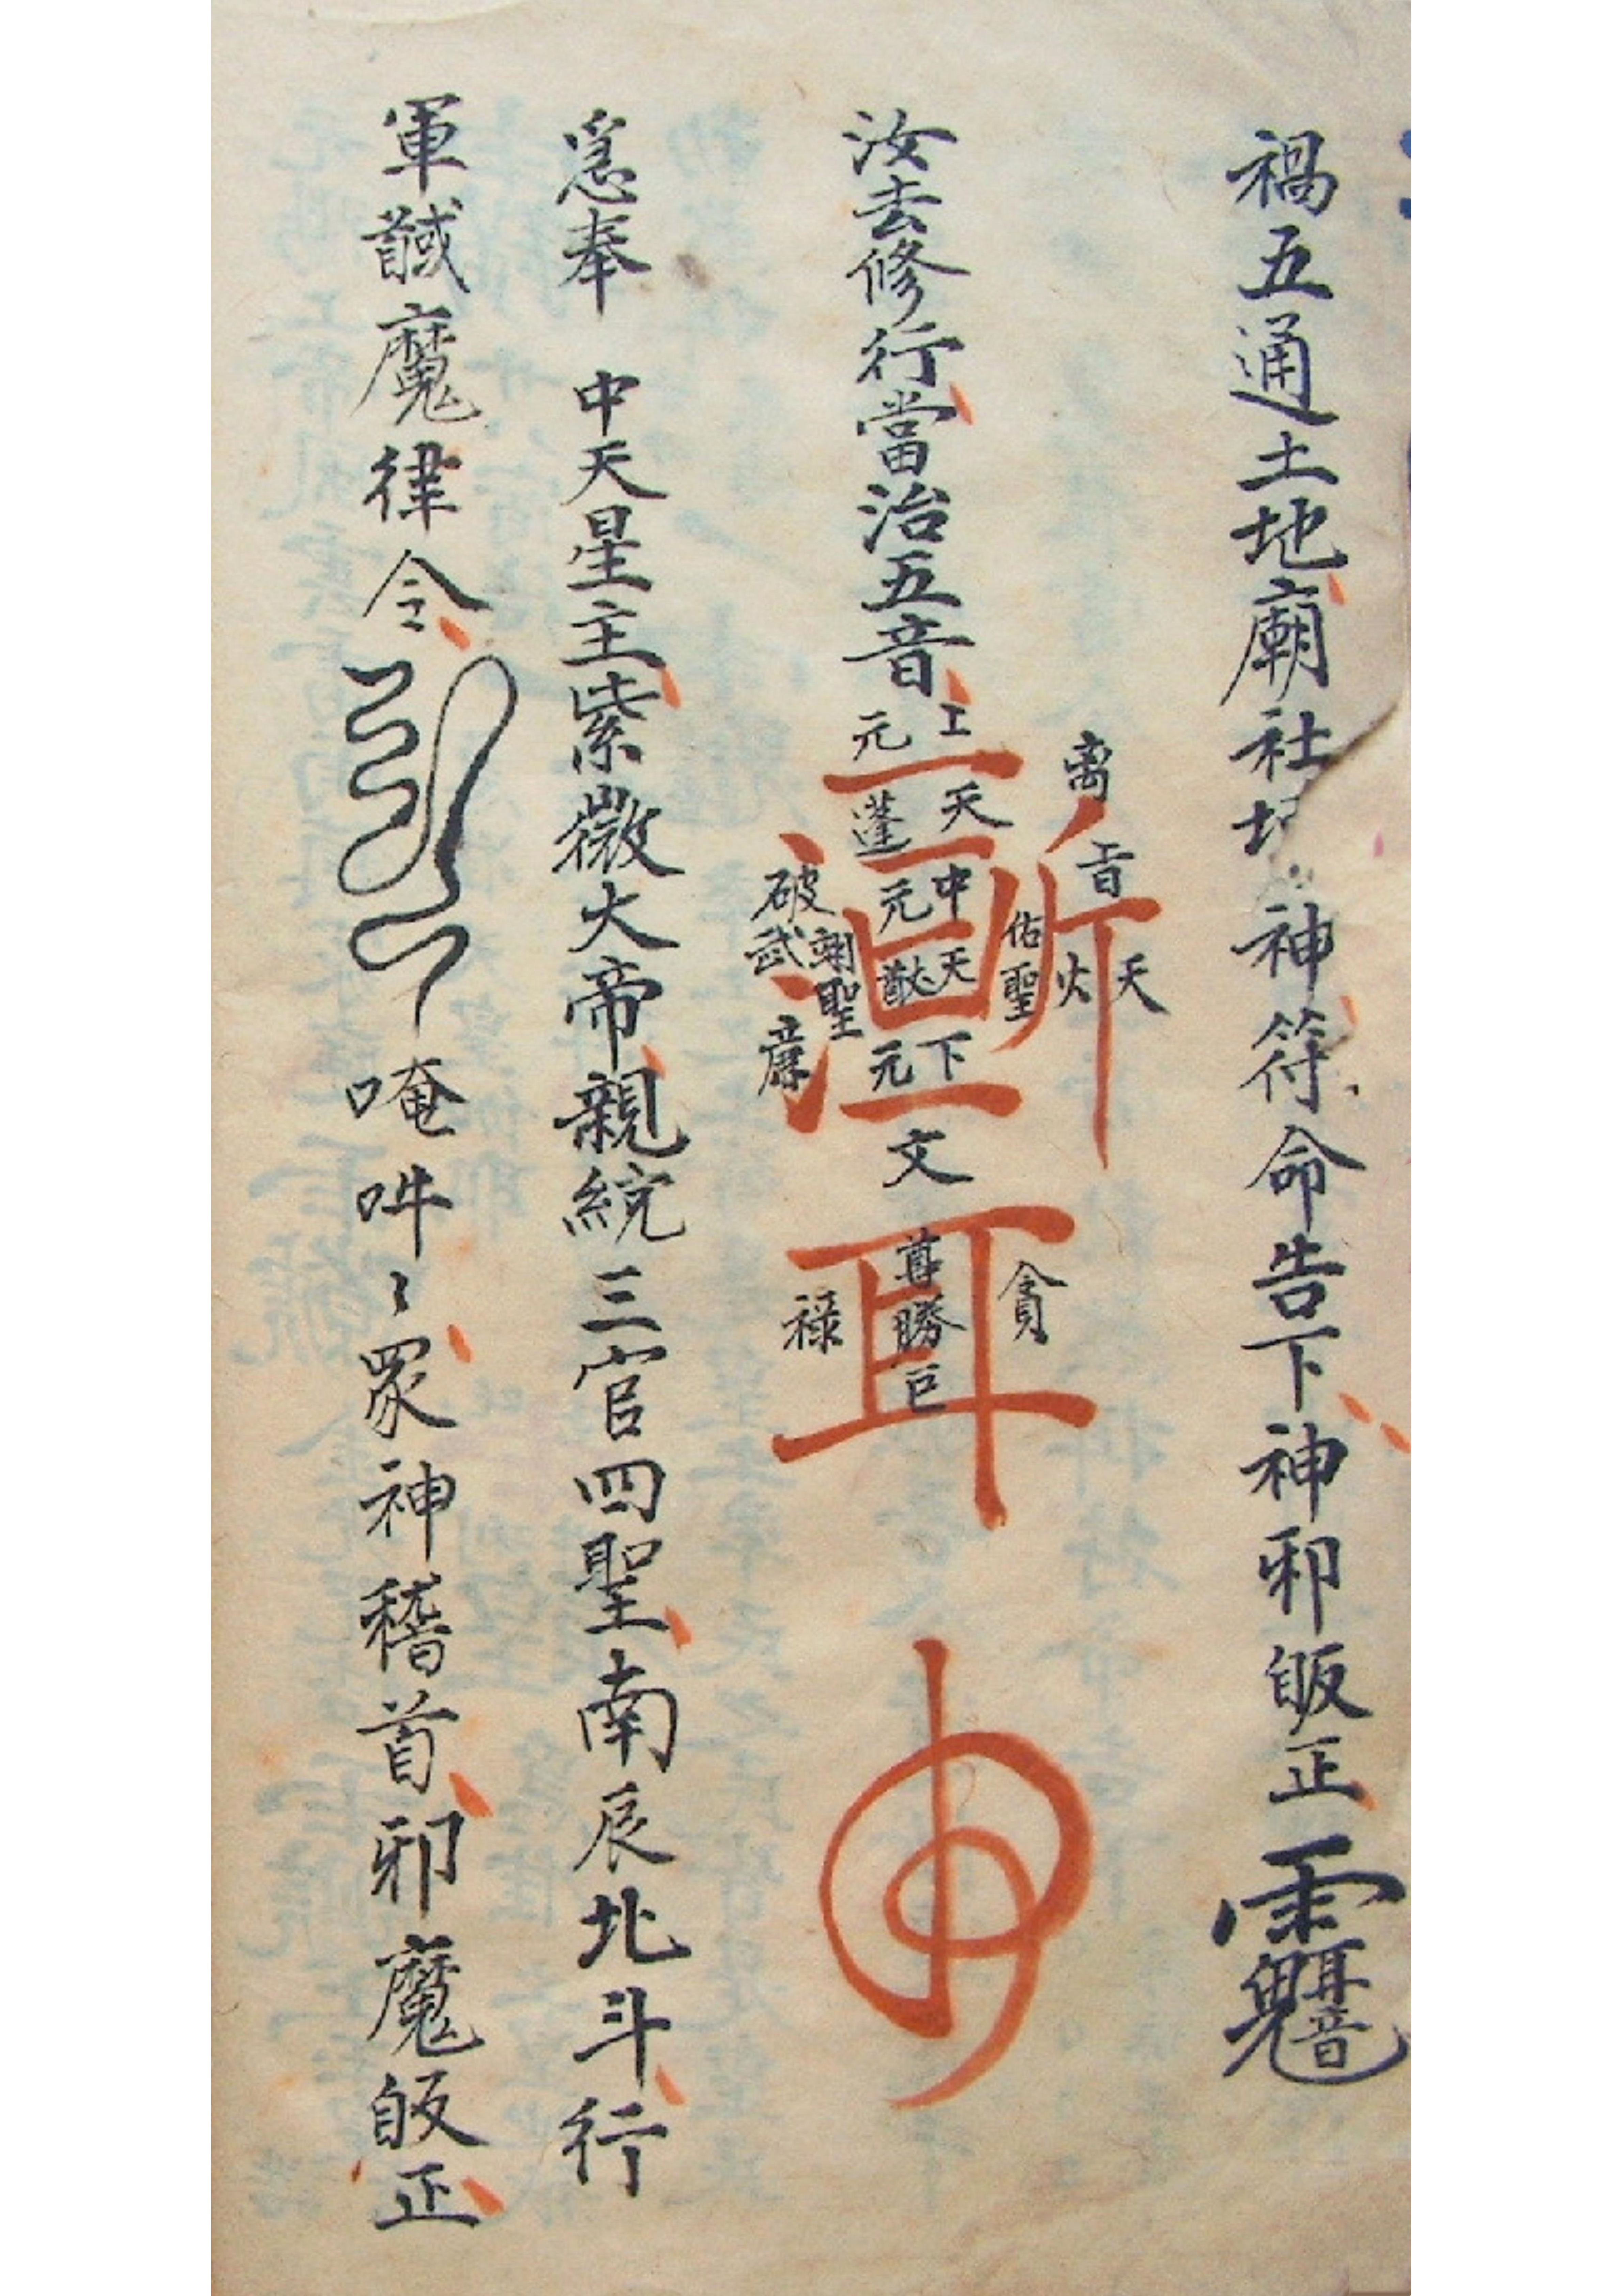 禍五通土地廟社坛神符命告下神邪皈正
汝去修行當治五音
上元
天蓬
中元
天猷
下元
文
离
天
火
佑聖
翊聖
破
武
廉
貪
尊勝
巨
禄
奉 中天星主紫微大帝親統三官四聖南辰北斗行
軍馘魔律令 唵吽〻眾神稽首邪魔皈正